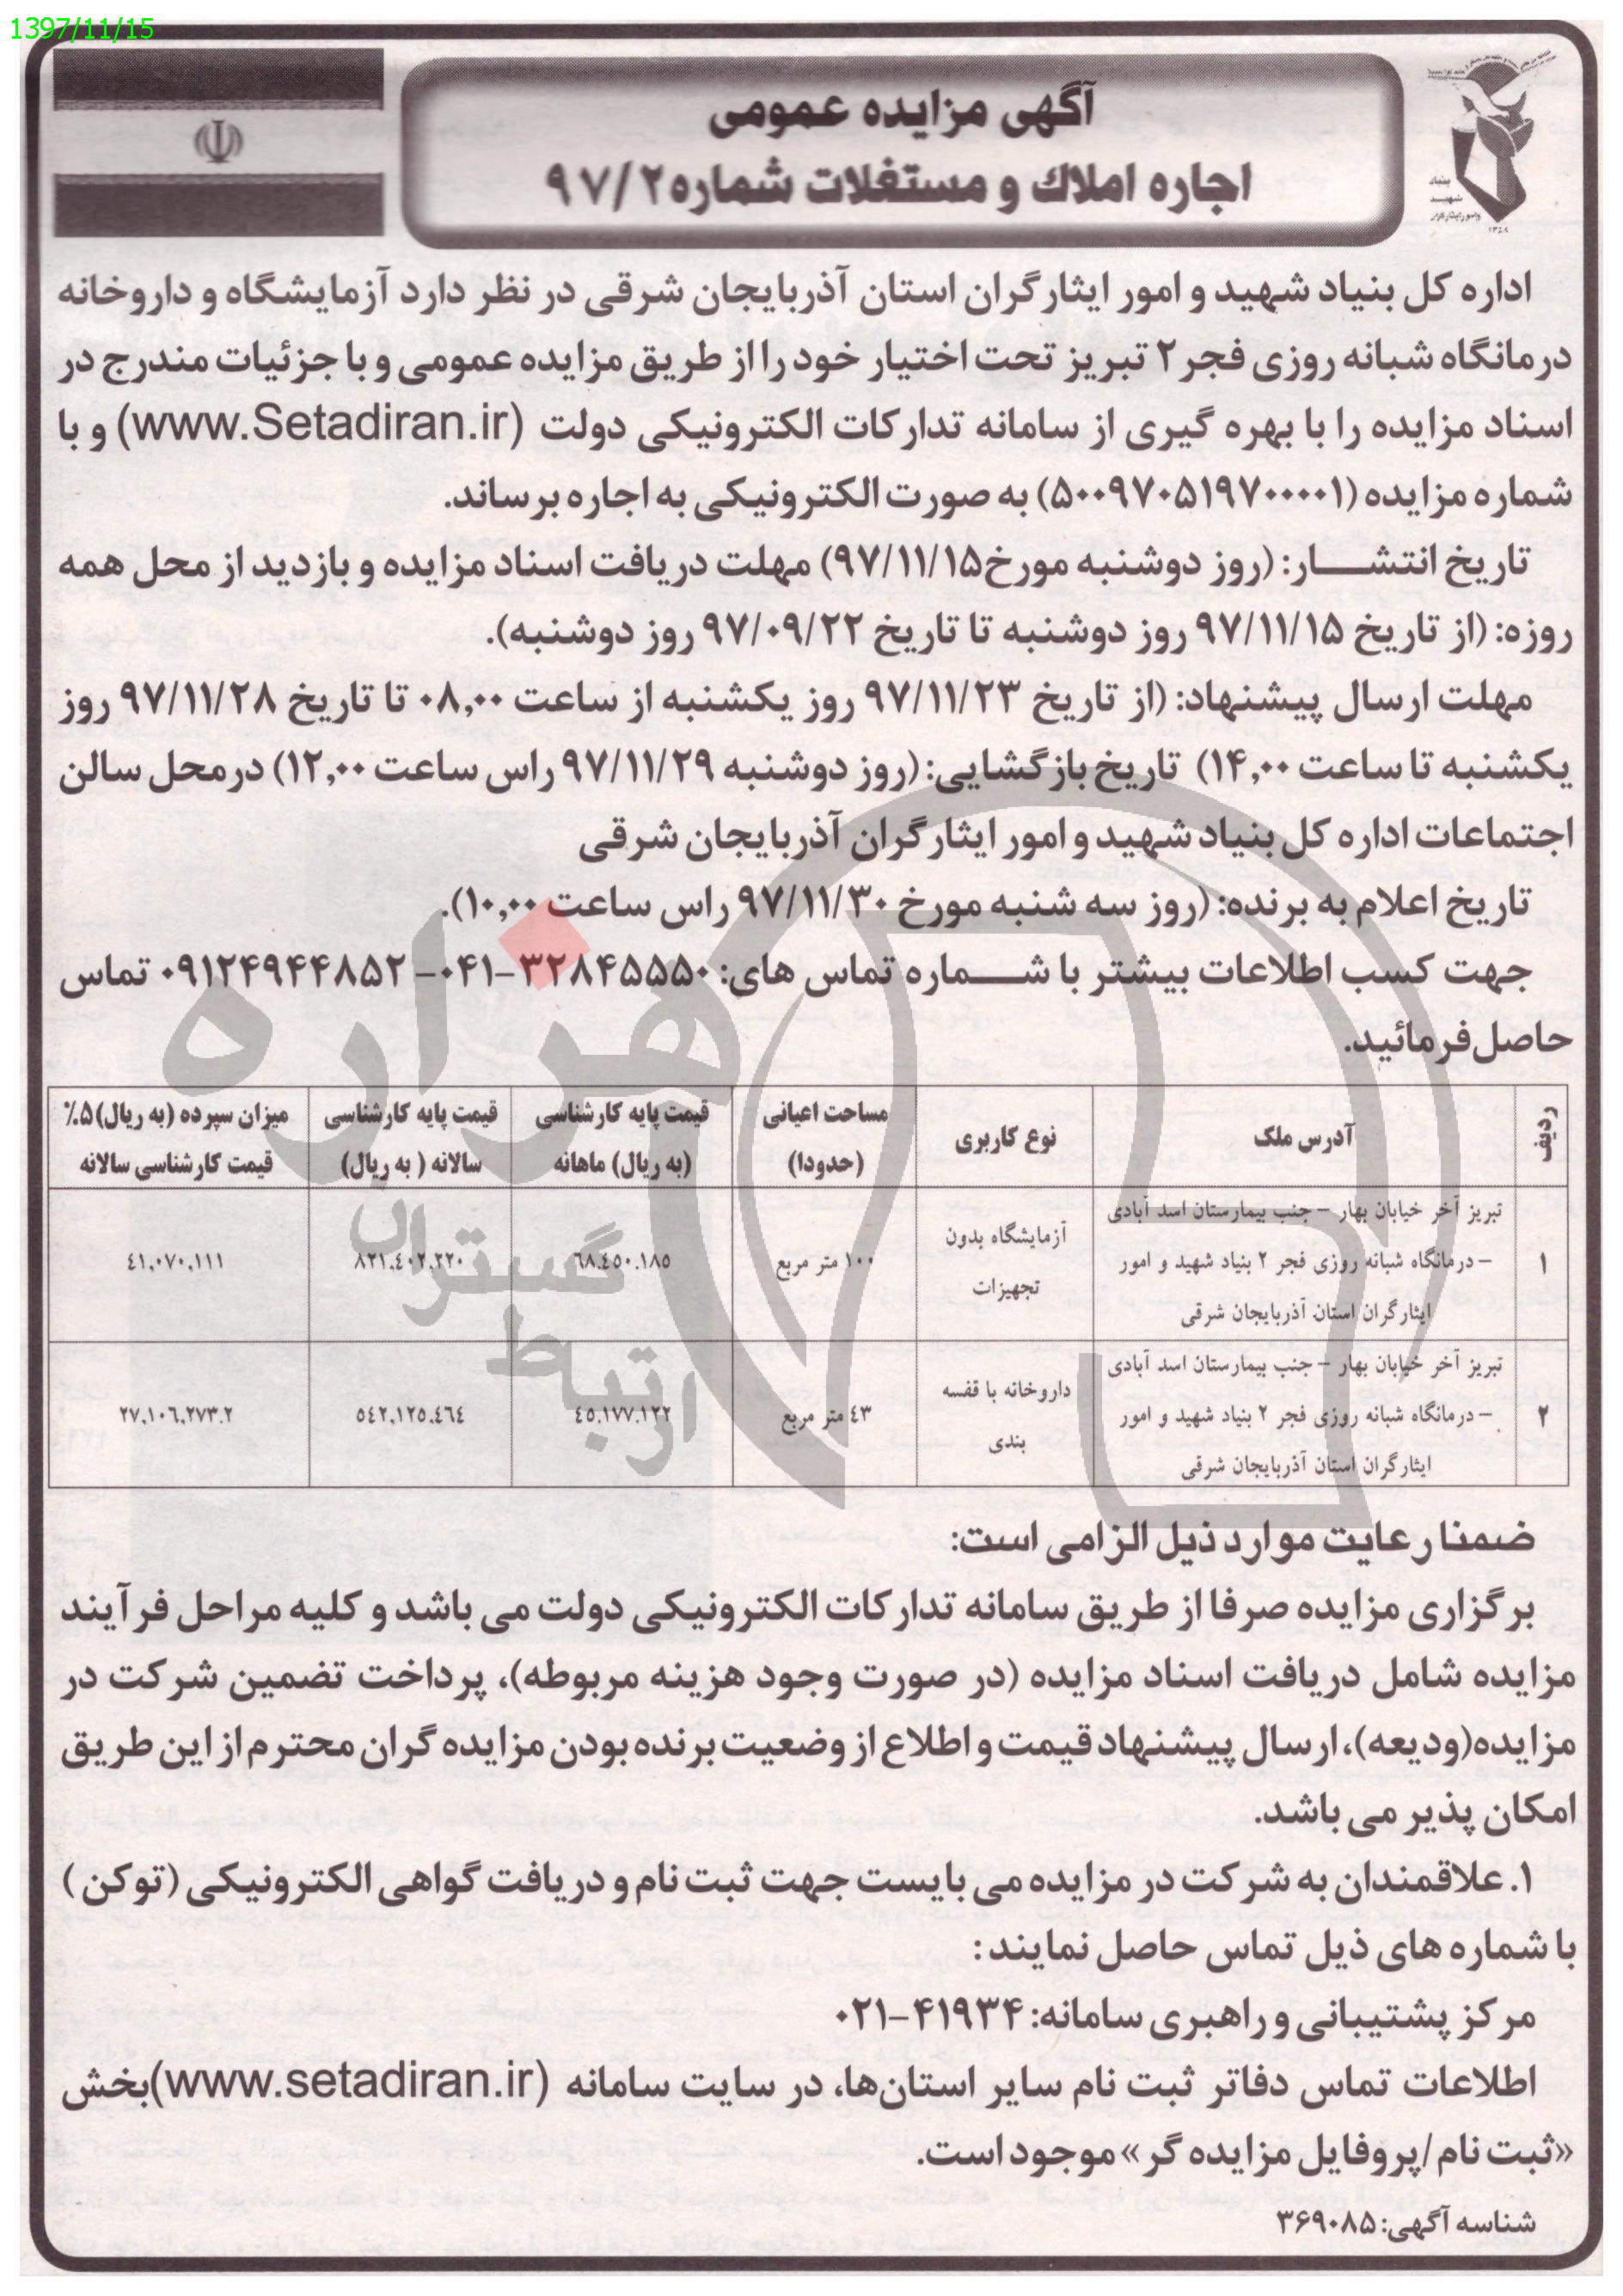 1397/11/15
آگهی مزایده عمومی
اجاره املاك و مستغلات شماره۹۷/۲
بنیاد
شهید
وامور ایثارگران
۱۳۵۸
اداره کل بنیاد شهید و امور ایثارگران استان آذربایجان شرقی در نظر دارد آزمایشگاه و داروخانه
درمانگاه شبانه روزی فجر ۲ تبریز تحت اختیار خود را از طریق مزایده عمومی و با جزئیات مندرج در
اسناد مزایده را با بهره گیری از سامانه تدارکات الکترونیکی دولت (www.Setadiran.ir) و با
شماره مزایده (۵۰۰۹۷۰۵۱۹۷۰۰۰۰۱) به صورت الکترونیکی به اجاره برساند.
تاریخ انتشــــار: (روز دوشنبه مورخ۹۷/۱۱/۱۵) مهلت دریافت اسناد مزایده و بازدید از محل همه
روزه: (از تاریخ ۹۷/۱۱/۱۵ روز دوشنبه تا تاریخ ۹۷/۰۹/۲۲ روز دوشنبه).
مهلت ارسال پیشنهاد: (از تاریخ ۹۷/۱۱/۲۳ روز یکشنبه از ساعت ۰۸,۰۰ تا تاریخ ۹۷/۱۱/۲۸ روز
یکشنبه تا ساعت ۱۴,۰۰) تاریخ بازگشایی: (روز دوشنبه ۹۷/۱۱/۲۹ راس ساعت ۱۲,۰۰) درمحل سالن
اجتماعات اداره کل بنیاد شهید و امور ایثارگران آذربایجان شرقی
تاریخ اعلام به برنده: (روز سه شنبه مورخ ۹۷/۱۱/۳۰ راس ساعت ۱۰,۰۰).
جهت کسب اطلاعات بیشتر با شــــماره تماس های: ۳۲۸۴۵۵۵۰-۰۴۱- ۰۹۱۲۴۹۴۴۸۵۲ تماس
حاصل فرمائید.
ردیف آدرس ملک نوع کاربری مساحت اعیانی (حدودا) قیمت پایه کارشناسی (به ریال) ماهانه قیمت پایه کارشناسی سالانه ( به ریال) میزان سپرده (به ریال)۵٪ قیمت کارشناسی سالانه
۱ تبریز آخر خیابان بهار – جنب بیمارستان اسد آبادی – درمانگاه شبانه روزی فجر ۲ بنیاد شهید و امور ایثارگران استان آذربایجان شرقی آزمایشگاه بدون تجهیزات ۱۰۰ متر مربع ٦٨,٤٥٠,١٨٥ ٨٢١,٤٠٢,٢٢٠ ٤١,٠٧٠,١١١
۲ تبریز آخر خیابان بهار – جنب بیمارستان اسد آبادی – درمانگاه شبانه روزی فجر ۲ بنیاد شهید و امور ایثارگران استان آذربایجان شرقی داروخانه با قفسه بندی ٤٣ متر مربع ٤٥,١٧٧,١٢٢ ٥٤٢,١٢٥,٤٦٤ ٢٧,١٠٦,٢٧٣.٢
هزاره
گستران
ارتباط
ضمنا رعایت موارد ذیل الزامی است:
برگزاری مزایده صرفا از طریق سامانه تدارکات الکترونیکی دولت می باشد و کلیه مراحل فرآیند
مزایده شامل دریافت اسناد مزایده (در صورت وجود هزینه مربوطه)، پرداخت تضمین شرکت در
مزایده(ودیعه)، ارسال پیشنهاد قیمت و اطلاع از وضعیت برنده بودن مزایده گران محترم از این طریق
امکان پذیر می باشد.
۱. علاقمندان به شرکت در مزایده می بایست جهت ثبت نام و دریافت گواهی الکترونیکی (توکن )
با شماره های ذیل تماس حاصل نمایند :
مرکز پشتیبانی و راهبری سامانه: ۴۱۹۳۴-۰۲۱
اطلاعات تماس دفاتر ثبت نام سایر استان‌ها، در سایت سامانه (www.setadiran.ir)بخش
«ثبت نام /پروفایل مزایده گر» موجود است.
شناسه آگهی: ۳۶۹۰۸۵